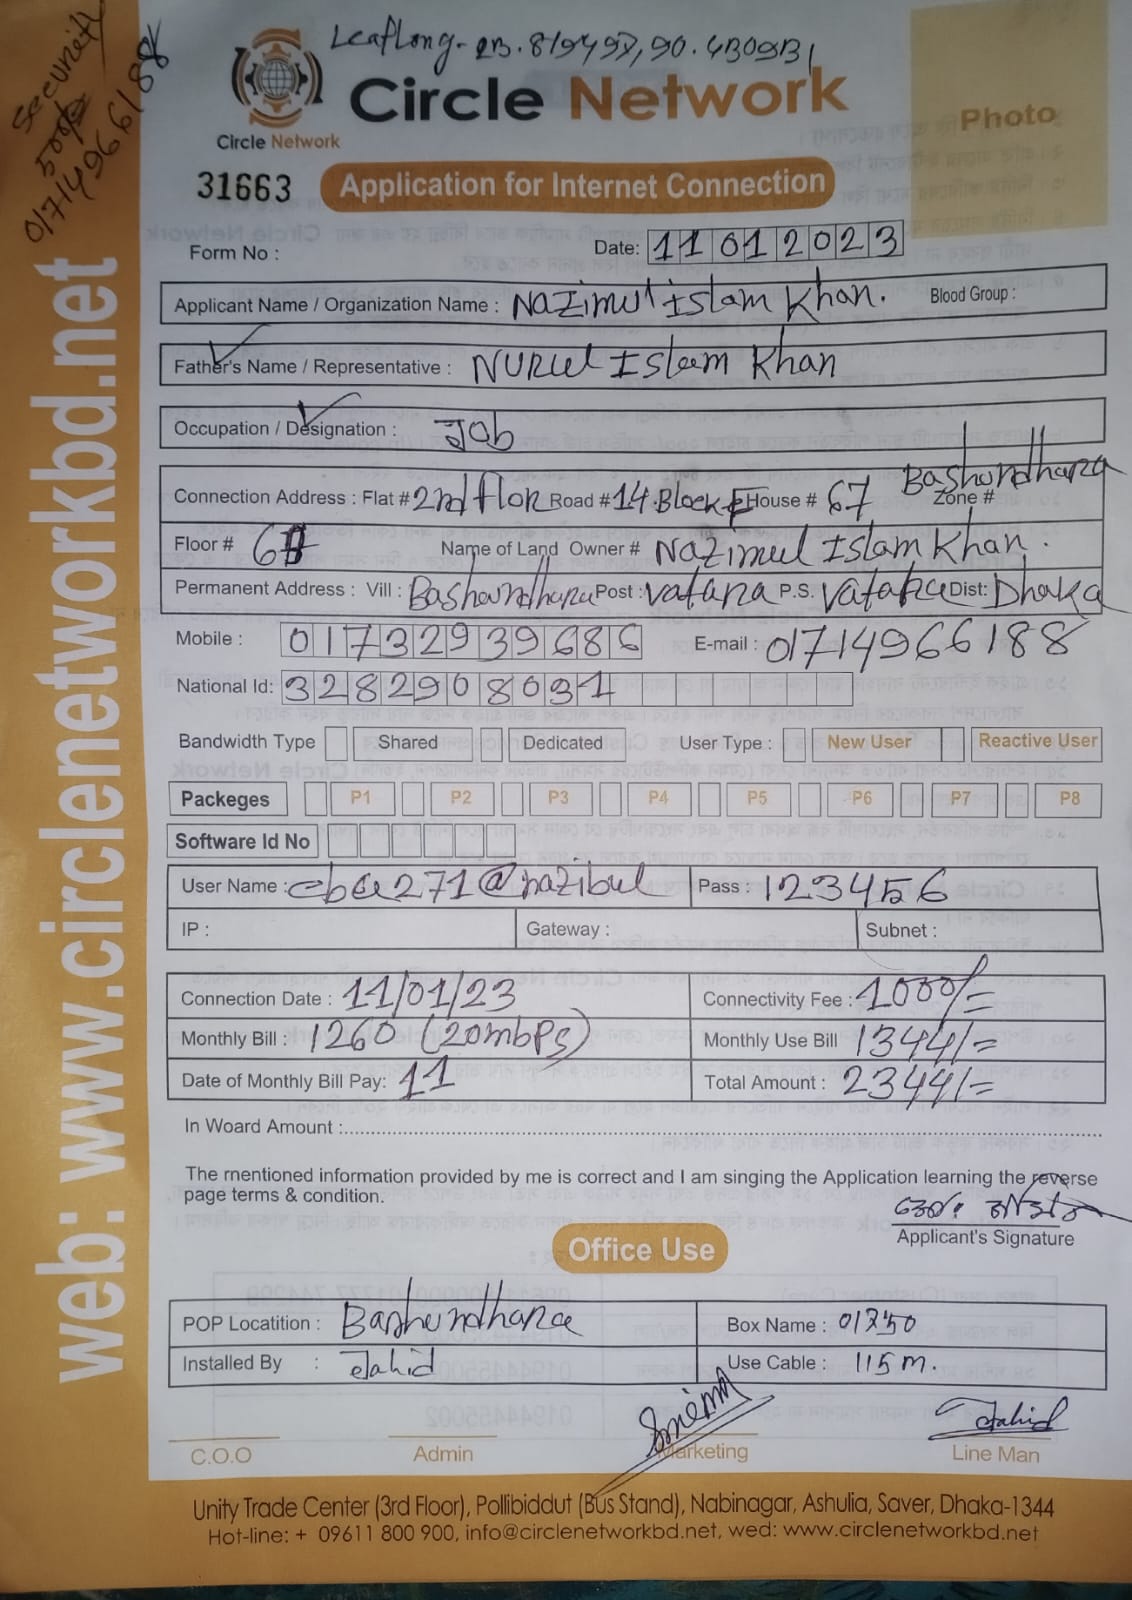 Security
500/=
01714966188
LeafLong-2B.819497,90.4B09B1
Circle Network
Circle Network
Photo
31663
Application for Internet Connection
Form No :
Date: 11012023
Applicant Name / Organization Name : Nazimul Islam Khan. Blood Group :
Father's Name / Representative : NURUL Islam Khan
Occupation / Designation : Job
Connection Address : Flat # 2nd flor Road # 14 Block F House # 67 Bashundhara Zone #
Floor # Name of Land Owner # Nazimul Islam Khan.
Permanent Address : Vill : Bashundhara Post : vatara P.S. Vatara Dist: Dhaka
Mobile : 01732939686 E-mail : 01714966188
National Id: 3282908031
Bandwidth Type Shared Dedicated User Type : New User Reactive User
Packeges P1 P2 P3 P4 P5 P6 P7 P8
Software Id No
User Name : cba271@nazibul Pass : 123456
IP : Gateway : Subnet :
Connection Date : 11/01/23 Connectivity Fee : 1000/=
Monthly Bill : 1260 (20mbps) Monthly Use Bill 1344/=
Date of Monthly Bill Pay: 11 Total Amount : 2344/=
In Woard Amount :
The mentioned information provided by me is correct and I am singing the Application learning the reverse
page terms & condition.
Applicant's Signature
Office Use
POP Locatition : Bashundhara Box Name : 01250
Installed By : Jahid Use Cable : 115 m.
Jahid
C.O.O Admin Marketing Line Man
Unity Trade Center (3rd Floor), Pollibiddut (Bus Stand), Nabinagar, Ashulia, Saver, Dhaka-1344
Hot-line: + 09611 800 900, info@circlenetworkbd.net, wed: www.circlenetworkbd.net
web: www.circlenetworkbd.net